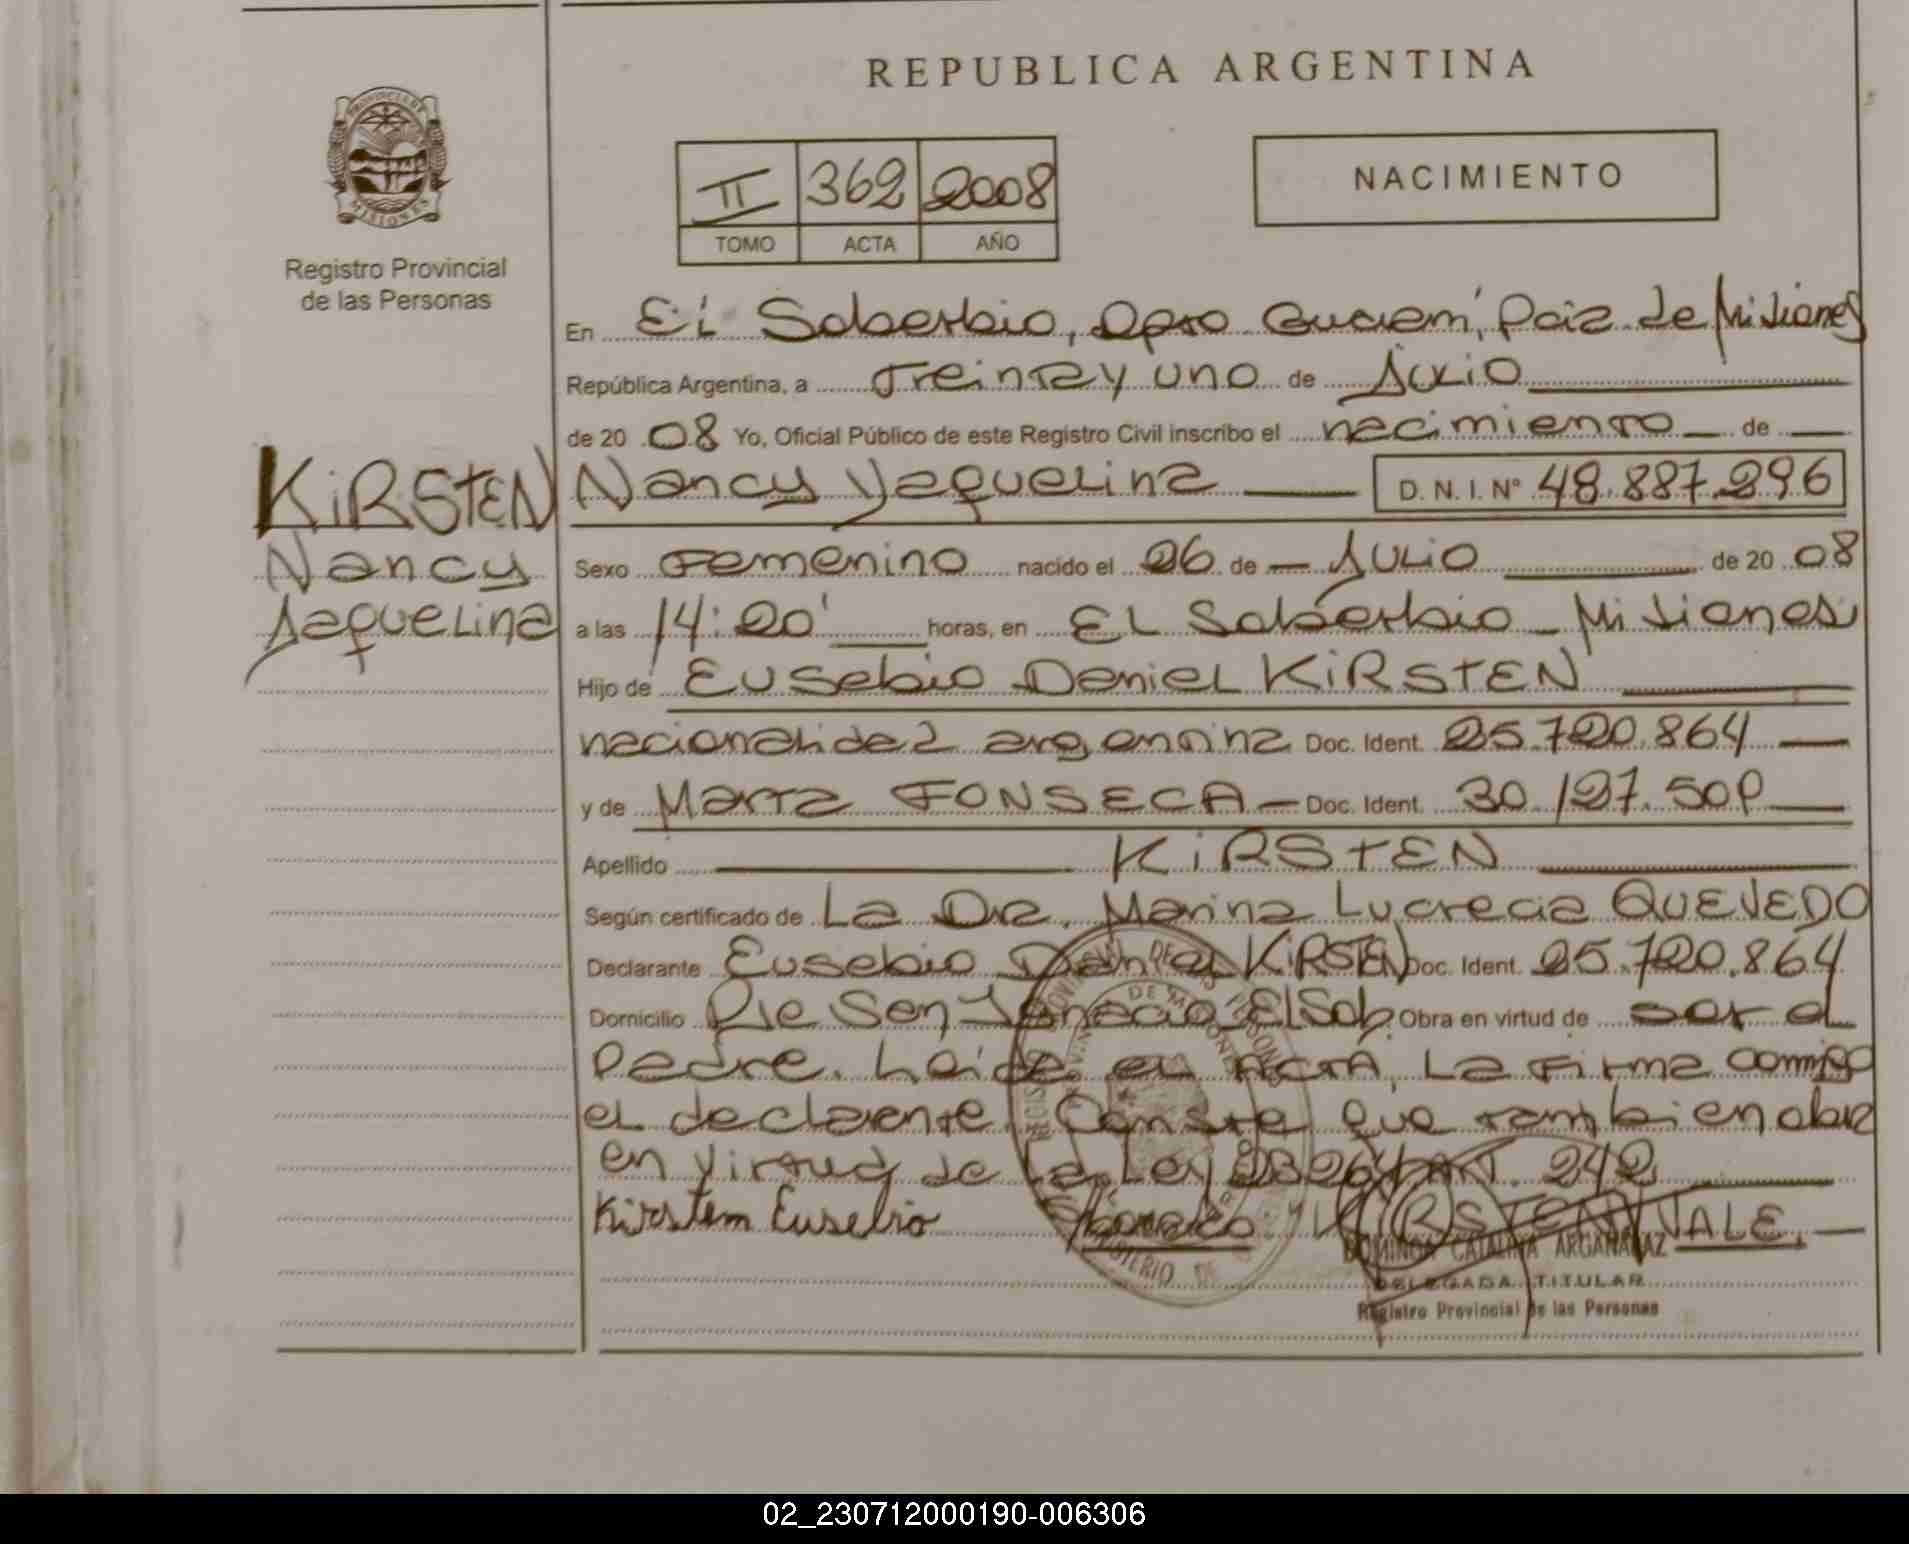 REPUBLICA ARGENTINA
PROVINCIA DE MISIONES
Registro Provincial
de las Personas
II 362 2008
TOMO ACTA AÑO
NACIMIENTO
En El Soberbio, Dpto Guaraní, Pcia de Misiones
República Argentina, a Treinta y uno de Julio
de 20 08 Yo, Oficial Público de este Registro Civil inscribo el nacimiento de
KIRSTEN
Nancy
Jaquelina
Nancy Yaquelina D.N.I. Nº 48.887.296
Sexo Femenino nacido el 26 de Julio de 20 08
a las 14:20' horas, en El Soberbio - Misiones
Hijo de Eusebio Daniel KIRSTEN
nacionalidad argentina Doc. Ident. 25.720.864
y de Marta FONSECA - Doc. Ident. 30.127.50
Apellido KIRSTEN
Según certificado de La Dra. Marina Lucrecia QUEVEDO
Declarante Eusebio Daniel KIRSTEN Doc. Ident. 25.720.864
Domicilio Pje San Ignacio El Sob. Obra en virtud de ser el
Padre. Leída el ACTA, La Firma conmigo
el declarante. Conste que también obra
en virtud de la Ley 23264 ART. 242
Kirstem Eusebio KIRSTEN VALE.
DOMINGA CATALINA ARGAÑARAZ
DELEGADA TITULAR
Registro Provincial de las Personas
02_230712000190-006306